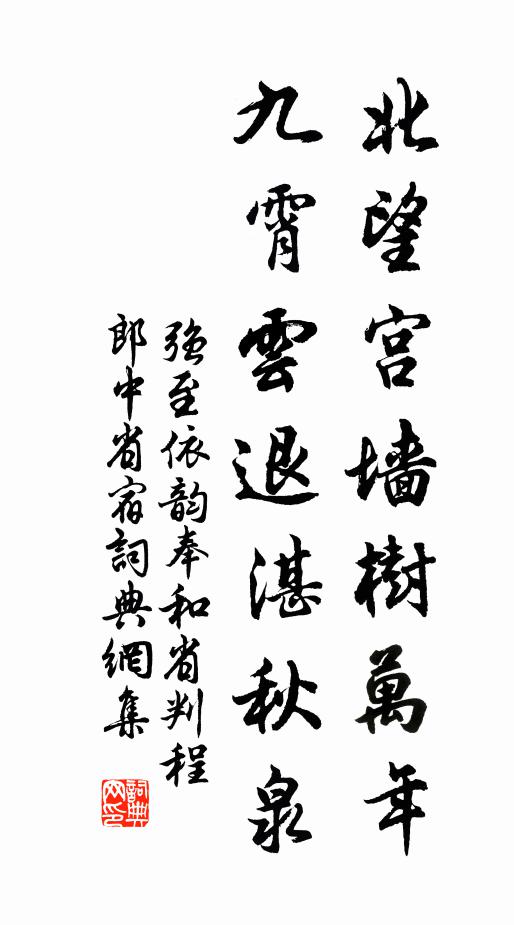 北望宫墙樹萬年
九霄雲退湛秋泉
強至依韵奉和省判程
郎中省宿詞典網集
詞典网印